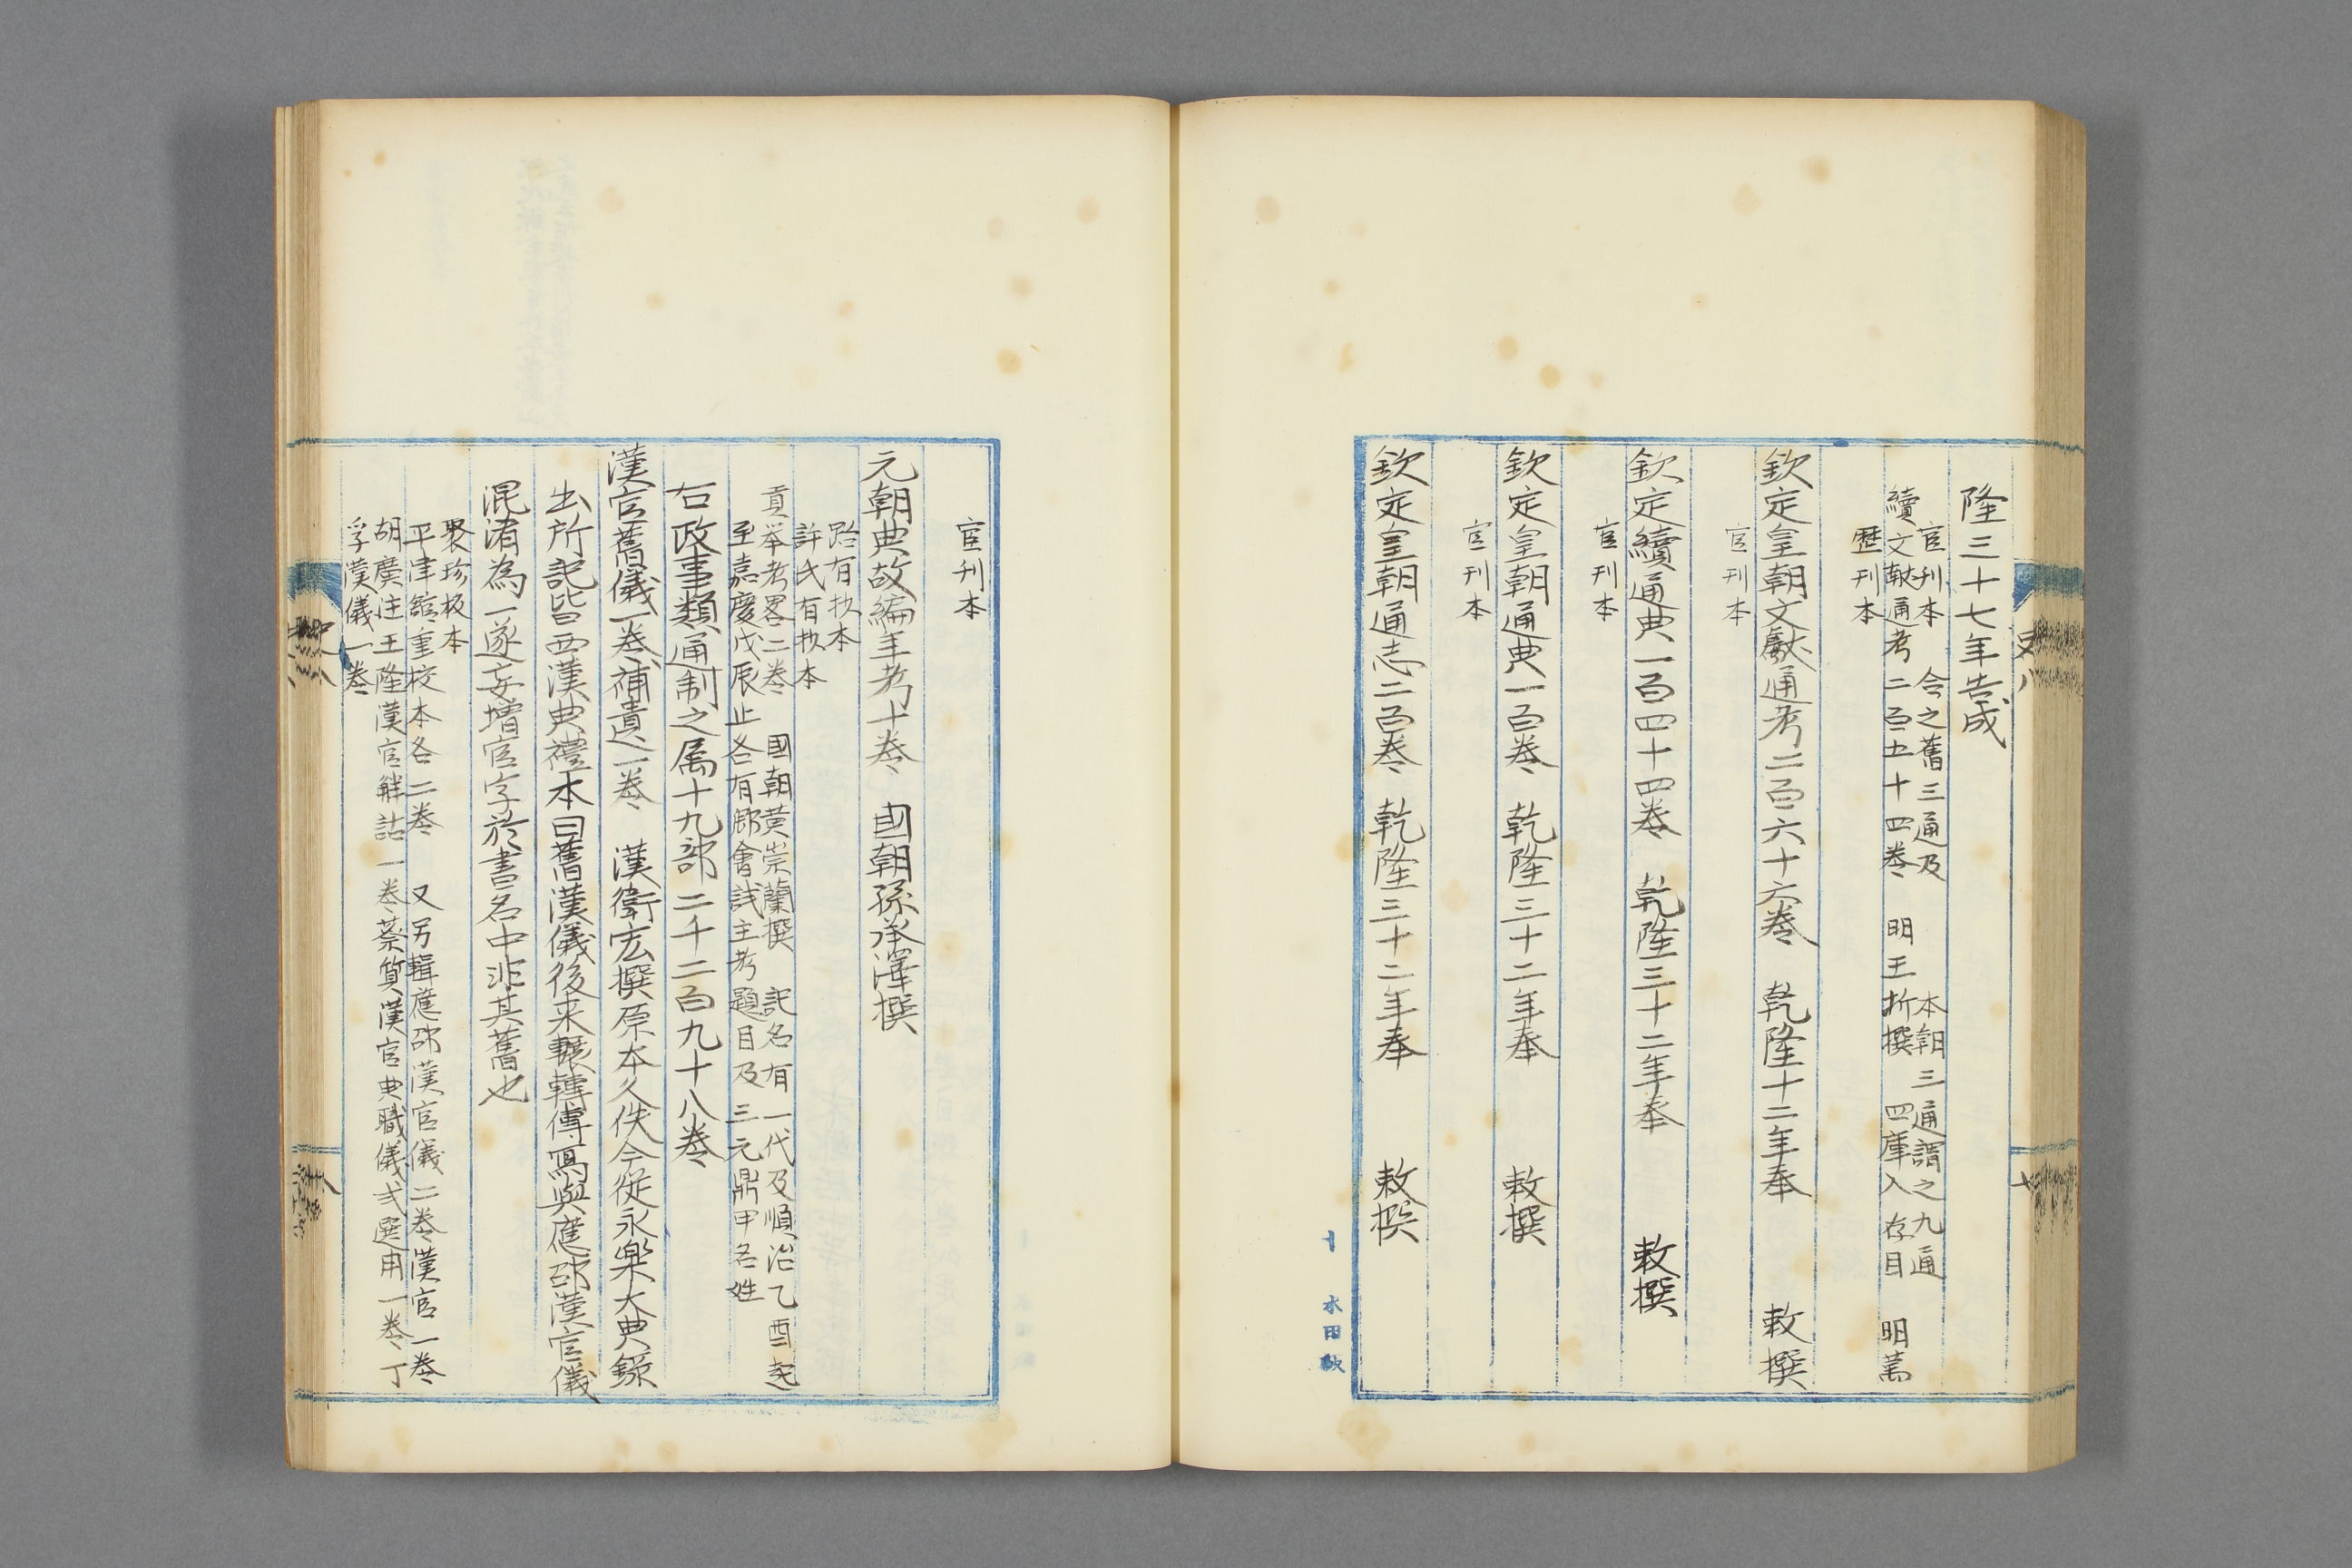 隆三十七年告成
官刊本　合之舊三通及　本朝三通謂之九通
續文献通考二百五十四卷　明王折撰　四庫入存目　明萬
歷刊本
欽定皇朝文獻通考二百六十六卷　乾隆十二年奉　敕撰
官刊本
欽定續通典一百四十四卷　乾隆三十二年奉　敕撰
官刊本
欽定皇朝通典一百卷　乾隆三十二年奉　敕撰
官刊本
欽定皇朝通志二百卷　乾隆三十二年奉　敕撰
十　水田
官刊本
元朝典故編年考十卷　國朝孫承澤撰
路有抄本
許氏有抄本
貢举考畧二卷　國朝黄崇蘭撰　記名有一代及順治乙酉起
至嘉慶戊辰止各有鄉會試主考題目及三元鼎甲名姓
右政事類通制之属十九部二千二百九十八卷
漢官舊儀一卷補遺一卷　漢衛宏撰原本久佚今從永樂大典錄
出所記皆西漢典禮本曰舊漢儀後来輾轉傳寫與應邵漢官儀
混淆為一遂妄增官字於書名中非其舊也
聚珍板本
平津館重校本各二卷　又另輯應邵漢官儀二卷漢官一卷
胡廣注王隆漢官觧詁一卷蔡質漢官典職儀式選用一卷丁
孚漢儀一卷